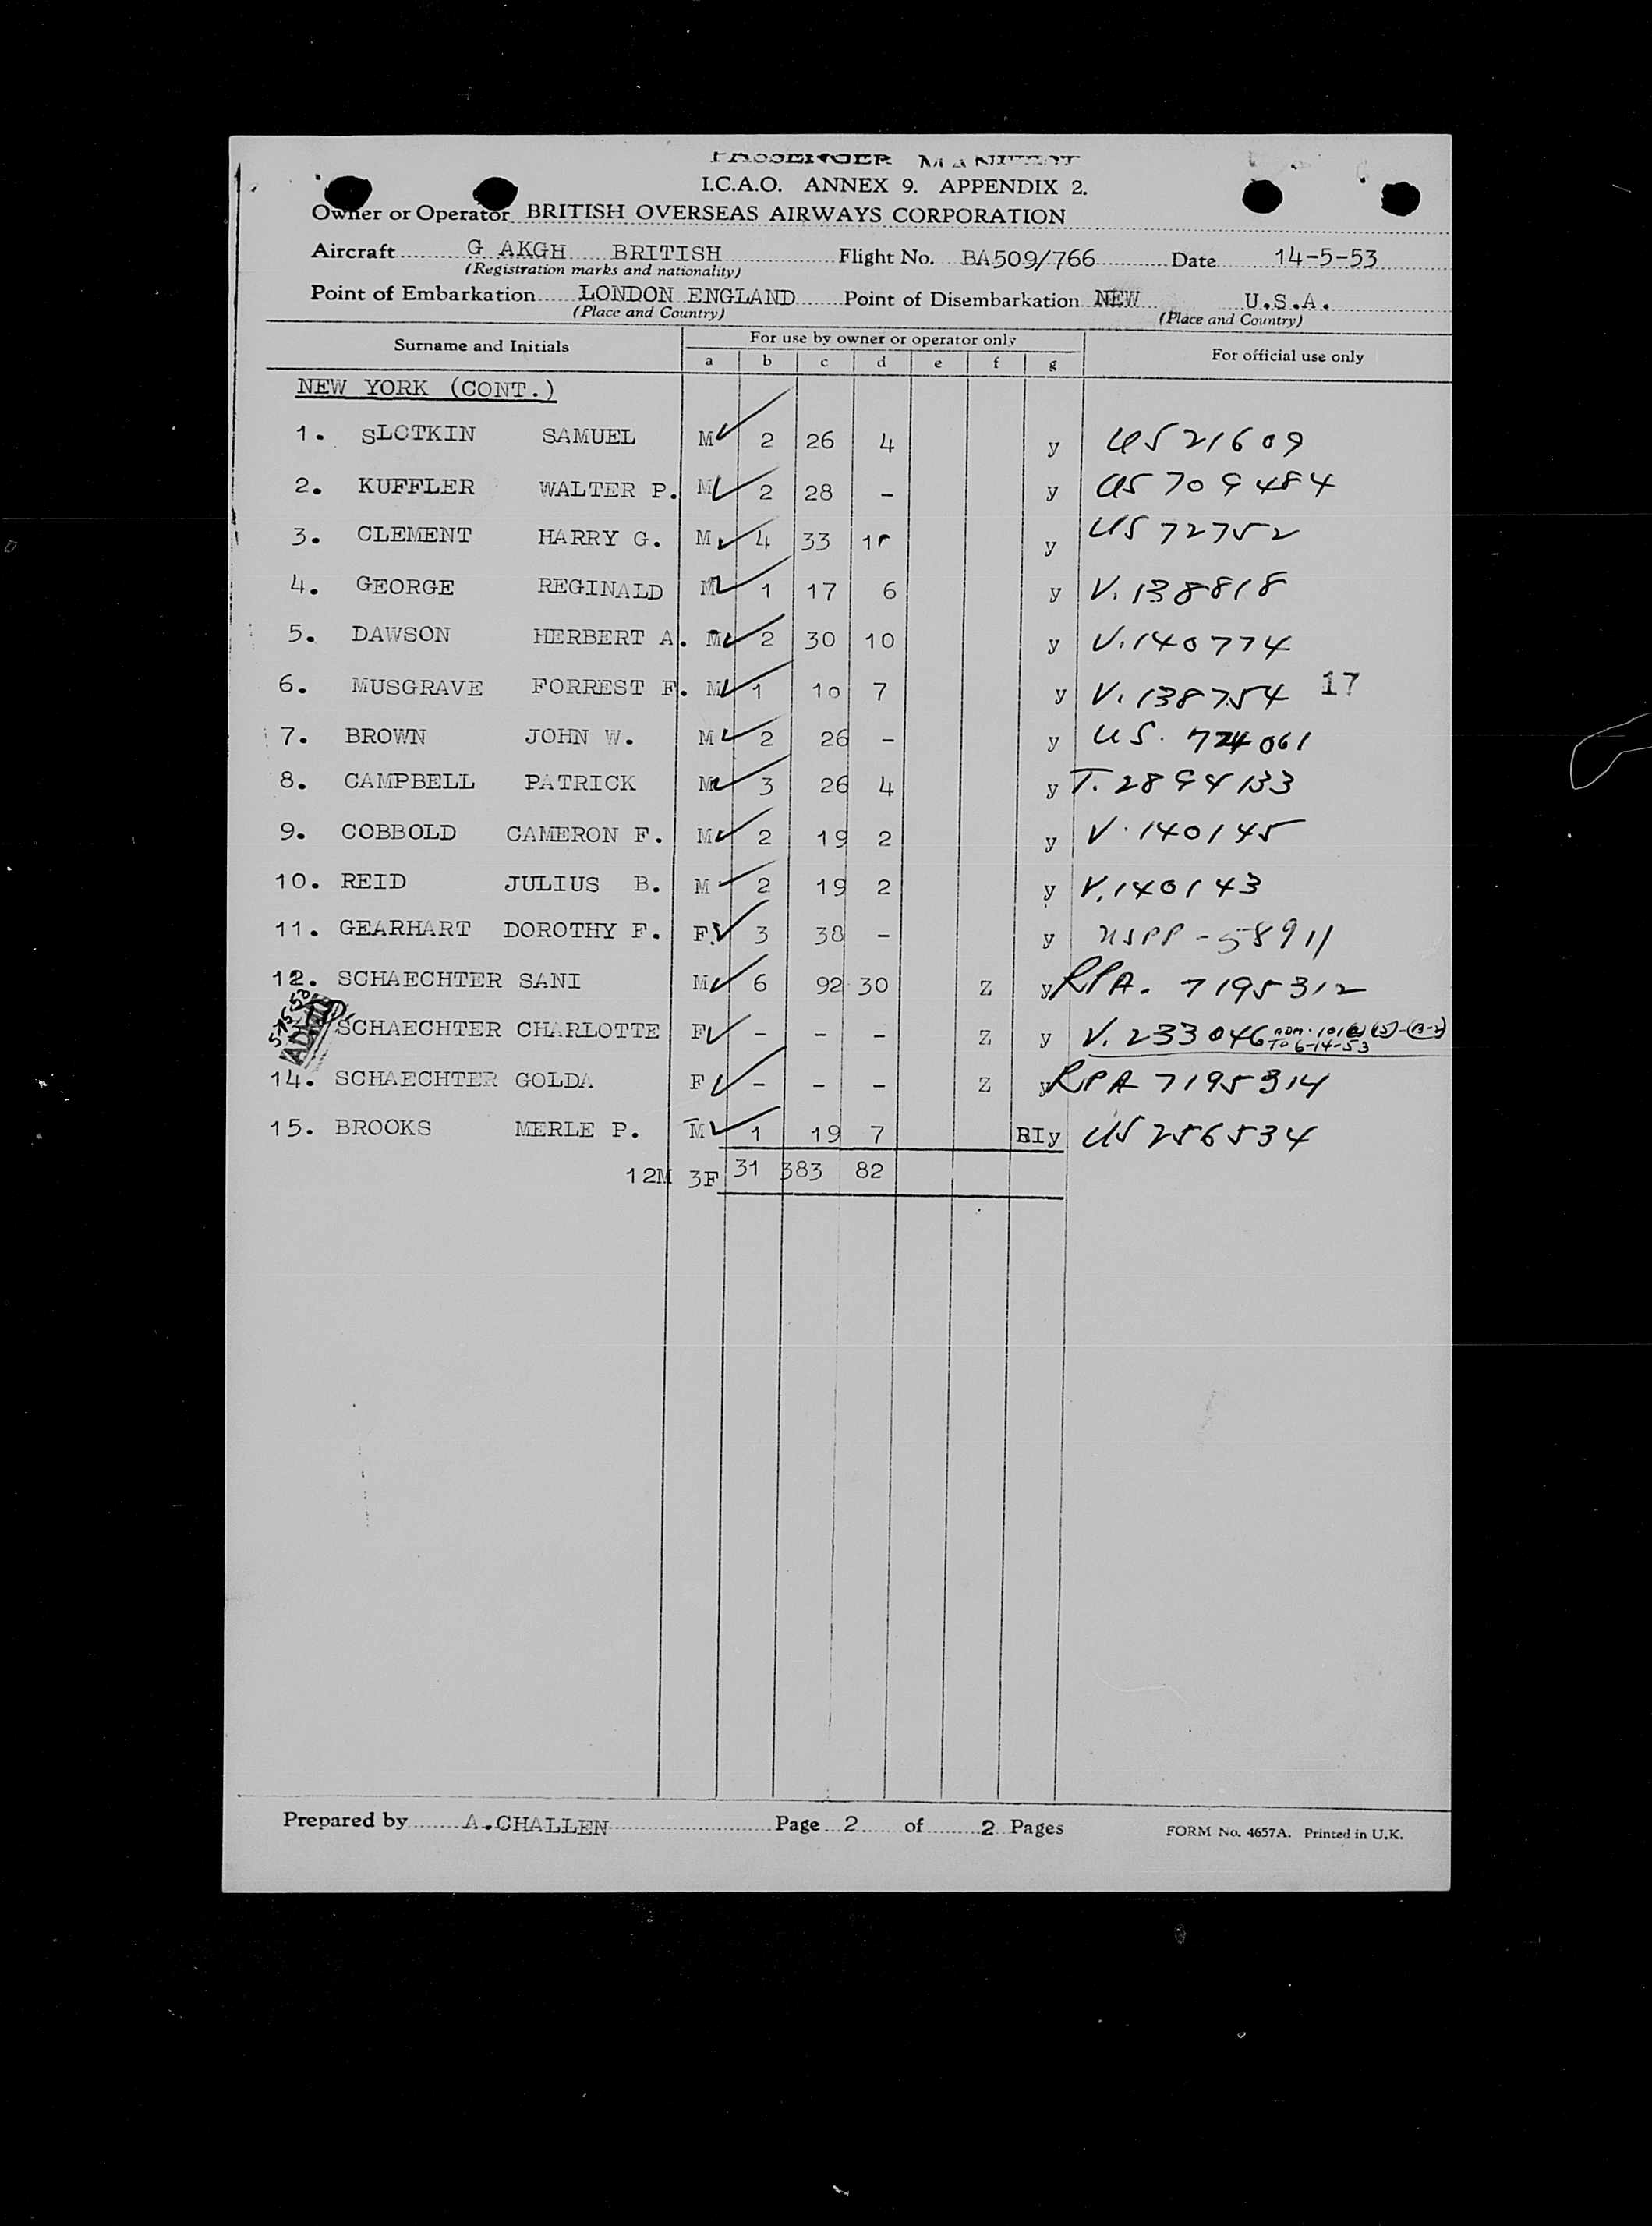 PASSENGER MANIFEST
I.C.A.O. ANNEX 9. APPENDIX 2.
Owner or Operator BRITISH OVERSEAS AIRWAYS CORPORATION
Aircraft G AKGH BRITISH Flight No. BA509/766 Date 14-5-53
(Registration marks and nationality)
Point of Embarkation LONDON ENGLAND Point of Disembarkation NEW U.S.A.
(Place and Country) (Place and Country)
Surname and Initials For use by owner or operator only For official use only
a b c d e f g
NEW YORK (CONT.)
1. SLOTKIN SAMUEL M 2 26 4 y US 21609
2. KUFFLER WALTER P. M 2 28 - y US 709484
3. CLEMENT HARRY G. M 4 33 y US 72752
4. GEORGE REGINALD M 1 17 6 y V. 138818
5. DAWSON HERBERT A. M 2 30 10 y V. 140774
6. MUSGRAVE FORREST F. M 1 10 7 y V. 138754 17
7. BROWN JOHN W. M 2 26 - y US. 724061
8. CAMPBELL PATRICK M 3 26 4 y T. 2894133
9. COBBOLD CAMERON F. M 2 19 2 y V. 140145
10. REID JULIUS B. M 2 19 2 y V. 140143
11. GEARHART DOROTHY F. F. 3 38 - y USPP - 58911
12. SCHAECHTER SANI M 6 92 30 Z y RPA. 7195312
5-15-53 ADMD SCHAECHTER CHARLOTTE F - - - Z y V. 233046 ADM. 101(a)(15)-(B-2)
TO 6-14-53
14. SCHAECHTER GOLDA F - - - Z y RPA 7195314
15. BROOKS MERLE P. M 1 19 7 BIy US 256534
12M 3F 31 383 82
Prepared by A.CHALLEN Page 2 of 2 Pages FORM No. 4657A. Printed in U.K.